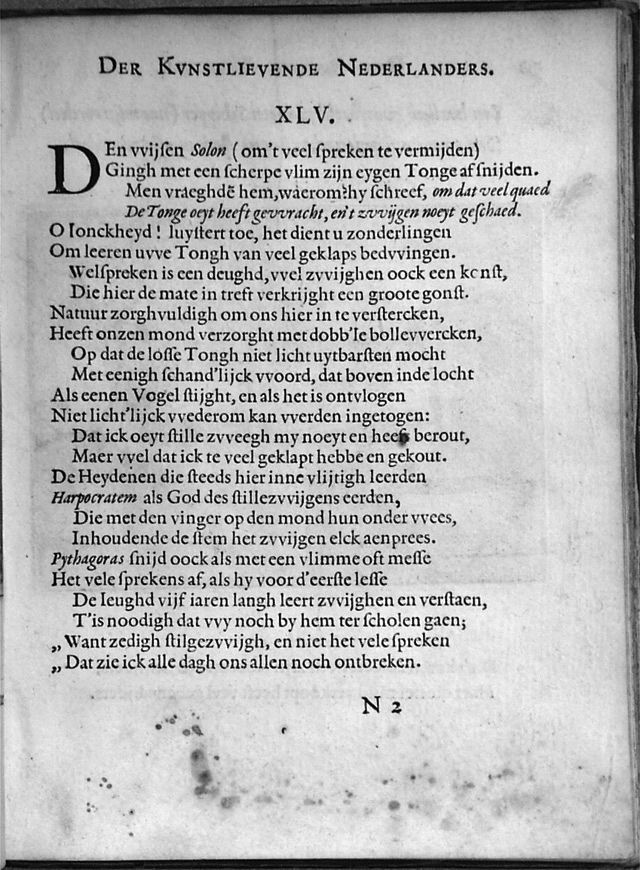 DER KVNSTLIEVENDE NEDERLANDERS.
XLV.
DEn vvijsen Solon (om't veel spreken te vermijden)
Gingh met een scherpe vlim zijn eygen Tonge afsnijden.
Men vraeghdē hem, waerom? hy schreef, om dat veel quaed
De Tonge oeyt heeft gevvracht, en't zvvijgen noeyt geschaed.
O Ionckheyd! luystert toe, het dient u zonderlingen
Om leeren uvve Tongh van veel geklaps bedvvingen.
Welspreken is een deughd, vvel zvvijghen oock een konst,
Die hier de mate in treft verkrijght een groote gonst.
Natuur zorghvuldigh om ons hier in te verstercken,
Heeft onzen mond verzorght met dobb'le bollevvercken,
Op dat de losse Tongh niet licht uytbarsten mocht
Met eenigh schand'lijck vvoord, dat boven inde locht
Als eenen Vogel stijght, en als het is ontvlogen
Niet licht'lijck vvederom kan vverden ingetogen:
Dat ick oeyt stille zvveegh my noeyt en heeft berout,
Maer vvel dat ick te veel geklapt hebbe en gekout.
De Heydenen die steeds hier inne vlijtigh leerden
Harpocratem als God des stillezvvijgens eerden,
Die met den vinger op den mond hun onder vvees,
Inhoudende de stem het zvvijgen elck aenprees.
Pythagoras snijd oock als met een vlimme oft messe
Het vele sprekens af, als hy voor d'eerste lesse
De Ieughd vijf iaren langh leert zvvijghen en verstaen,
T'is noodigh dat vvy noch by hem ter scholen gaen;
„ Want zedigh stilgezvvijgh, en niet het vele spreken
„ Dat zie ick alle dagh ons allen noch ontbreken.
N 2